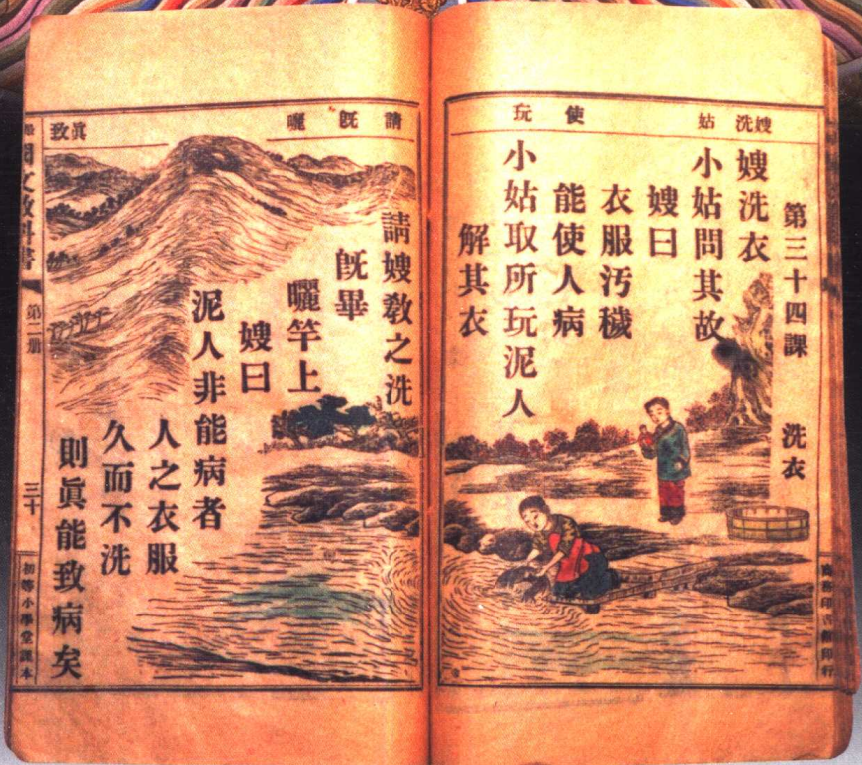 嫂洗 姑 使 玩
第三十四課 洗衣
嫂洗衣
小姑問其故
嫂曰
衣服汚穢
能使人病
小姑取所玩泥人
解其衣
商務印書館印行
請 旣 曬 眞致
請嫂敎之洗
旣畢
曬竿上
嫂曰
泥人非能病者
人之衣服
久而不洗
則眞能致病矣
國文敎科書 第二册 三十 初等小學堂課本